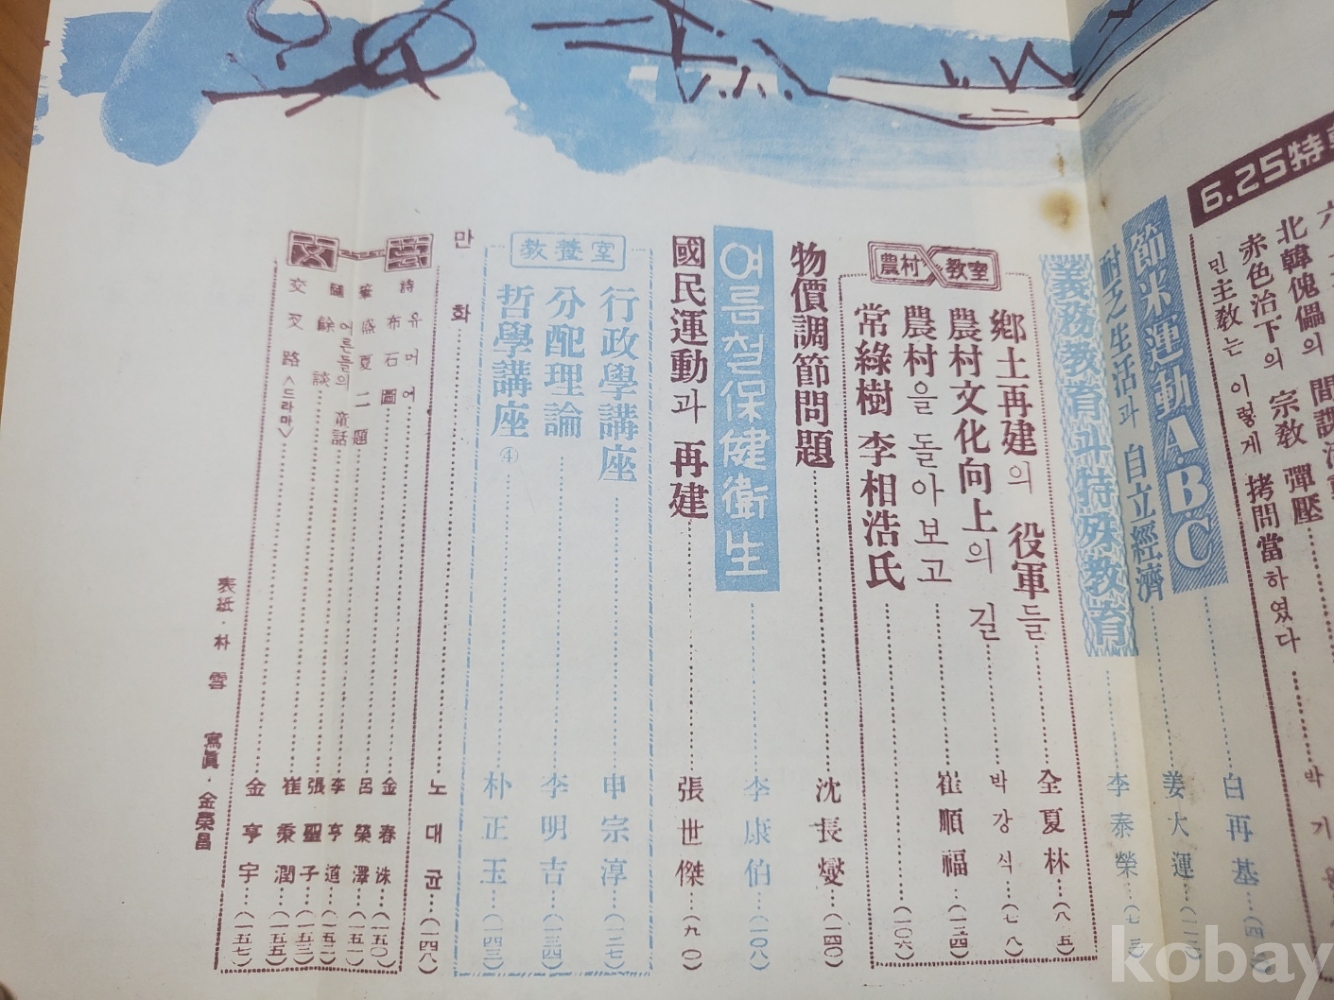 6.25特
北韓傀儡의 間諜
赤色治下의 宗敎 彈壓
民主敎는 이렇게 拷問當하였다
박 기
節米運動A.BC
白再基
耐乏生活과 自立經濟
姜大運
義務教育斗特殊教育
李泰榮
農村教室
鄕土再建의 役軍들
全夏林(八五)
農村文化向上의 길
박강식(七八)
農村을 돌아보고
崔順福
常綠樹 李相浩氏
(一〇六)
物價調節問題
沈長燮(一四〇)
여름철保健衛生
李康伯(一〇八)
國民運動과 再建
張世傑(九〇)
教養室
行政學講座
申宗淳(一二七)
分配理論
李明吉(一三四)
哲學講座④
朴正玉(一四三)
만화
노대균(一四八)
文學
詩 유머어
金春洙(一五〇)
布石圖
呂榮澤(一五一)
筆 盛夏二題
李亨道(一五二)
어른들의 童話
張聖子(一五三)
隨 餘談
崔秉潤(一五五)
交叉路<드라마>
金亨宇(一五七)
表紙·朴雲
寫眞·金榮昌
kobay